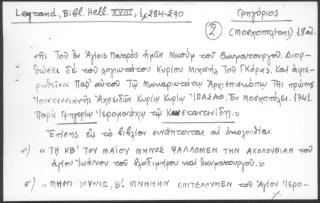 Legrand, Bibl. Hell. XVIII, 1, 284-290
Γρηγόριος
2 (Μοσχοπολίτης) 1841.
της Τοῦ ἐν Ἁγίοις Πατρὸς ἡμῶν Ναοὺμ τοῦ Θαυματουργοῦ. Διορ-
θωθεῖσα δὲ τοῦ λογιωτάτου Κυρίου Μιχαὴλ τοῦ Γκόρας. Καὶ ἀφιε-
ρωθεῖσα Παρ' αὐτοῦ Τῷ Μακαριωτάτῳ Ἀρχιεπισκόπῳ Τῆς πρώτης
Ἰουστινιανῆς Ἀχριδῶν Κυρίῳ Κυρίῳ "ΙΩΑΣΑΦ. Ἐν Μοσχοπόλει. 1741.
Παρὰ Γρηγορίῳ Ἱερομονάχῳ τῷ Κωνσταντινίδῃ."
Ἐπίσης εἰς τὸ βιβλίον ἐνυπάρχουν αἱ ἀκολουθίαι:
α') "ΤΗ ΚΒ' ΤΟΥ ΜΑΪΟΥ ΜΗΝΟΣ ΨΑΛΛΟΜΕΝ ΤΗΝ ΑΚΟΛΟΥΘΙΑΝ τοῦ
ἁγίου Ἰωάννου τοῦ Βλαδιμήρου καὶ θαυματουργοῦ."
β') "ΜΗΝΙ ΙΟΥΝΙΩ, Β'. ΜΝΗΜΗΝ ΕΠΙΤΕΛΟΥΜΕΝ τοῦ Ἁγίου Ἱερο-